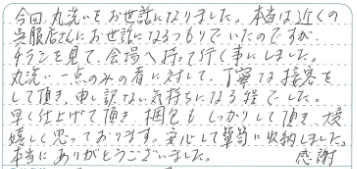 今回、丸洗いをお世話になりました。本当は近くの
呉服店さんにお世話になるつもりでいたのですが、
チラシを見て、会場へ持って行く事にしました。
丸洗い一点のみの者に対して、丁寧な接客を
して頂き、申し訳ない気持ちになる程でした。
早く仕上げて頂き、梱包もしっかりして頂き、大変
嬉しく思っております。安心して箪笥に収納しました。
本当にありがとうございました。 感謝